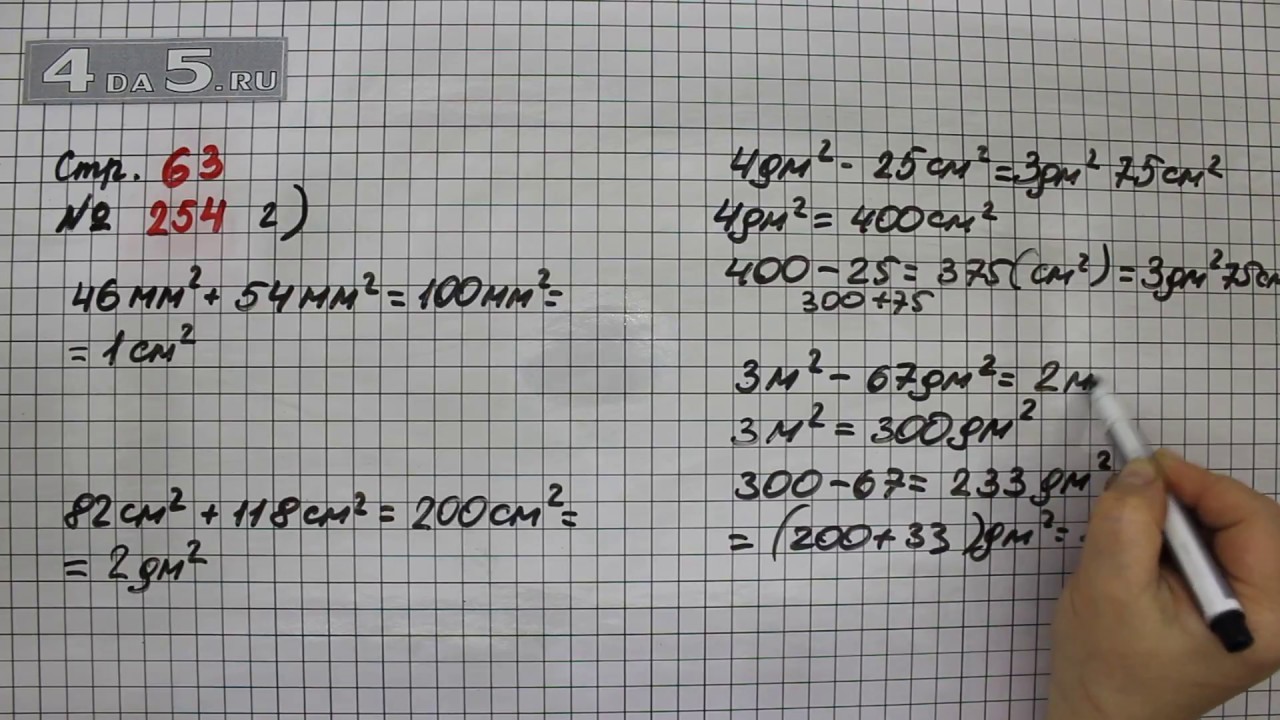 4DA5.RU
Стр. 63
№ 254 2)
46мм²+ 54мм²=100мм²=
= 1см²
82см²+118см²=200см²=
= 2дм²
4дм²- 25см²=3дм² 75см²
4дм²= 400см²
400-25= 375(см²)=3дм²75см
300+75
3м²- 67дм²= 2м
3м²= 300дм²
300-67= 233дм²
= (200+33)дм²=